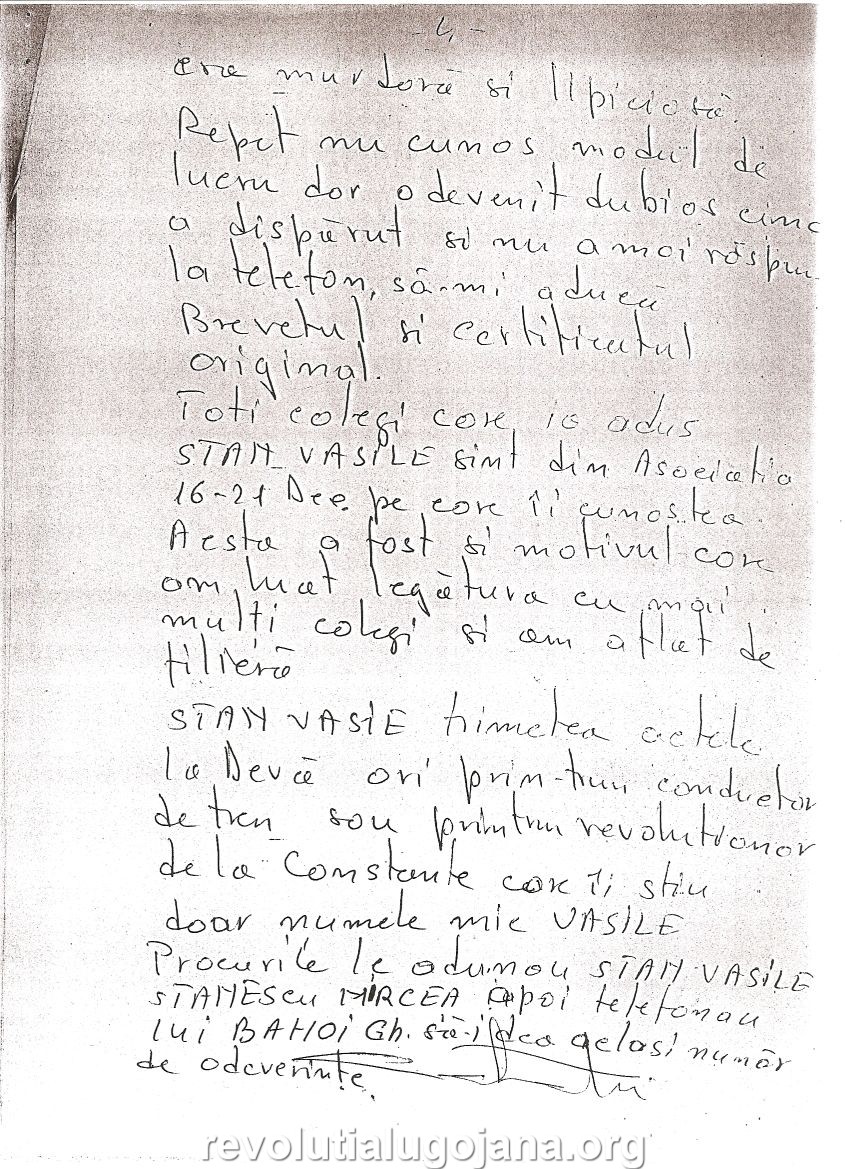 - 4 -
era murdoră si lipicioasă.
Repet nu cunos modul de
lucru dor o devenit dubios cînd
a dispărut si nu a moi răspun
la telefon, să-mi aducă
Brevetul si certificatul
original.
Toti colegi core io adus
STAN VASILE sînt din Asociatia
16-21 Dec. pe core îi cunostea.
Acsta a fost si motivul core
om luat legătura cu moi
multi colegi si am aflat de
filieră
STAN VASIE trimetea actele
la Devă ori prin-trun conductor
de tren sou printrun revolutionor
de la Constante core îi stiu
doar numele mic VASILE
Procurile le odunou STAN VASILE
STANESCU MIRCEA apoi telefonau
lui BAHOI Gh. să-i dea acelasi număr
de odeverinte.
revolutialugojana.org